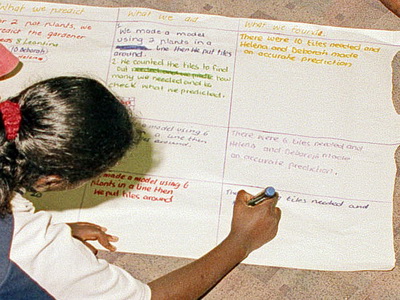 What we predict
What we did
What we found
for 2 pot plants, we
predict the gardener
& Leandra
Deborah
We made a model
using 2 plants in a
line then We put tiles
around.
2. We counted the tiles to find
out how
many we needed and to
check what we predicted.
There were 10 tiles needed and
Helena and Deborah made
an accurate prediction
model using 6
There were 6 tiles needed and
Helena and Deborah made
an accurate prediction.
made a model using 6
plants in a line then
We put tiles around
tiles needed and